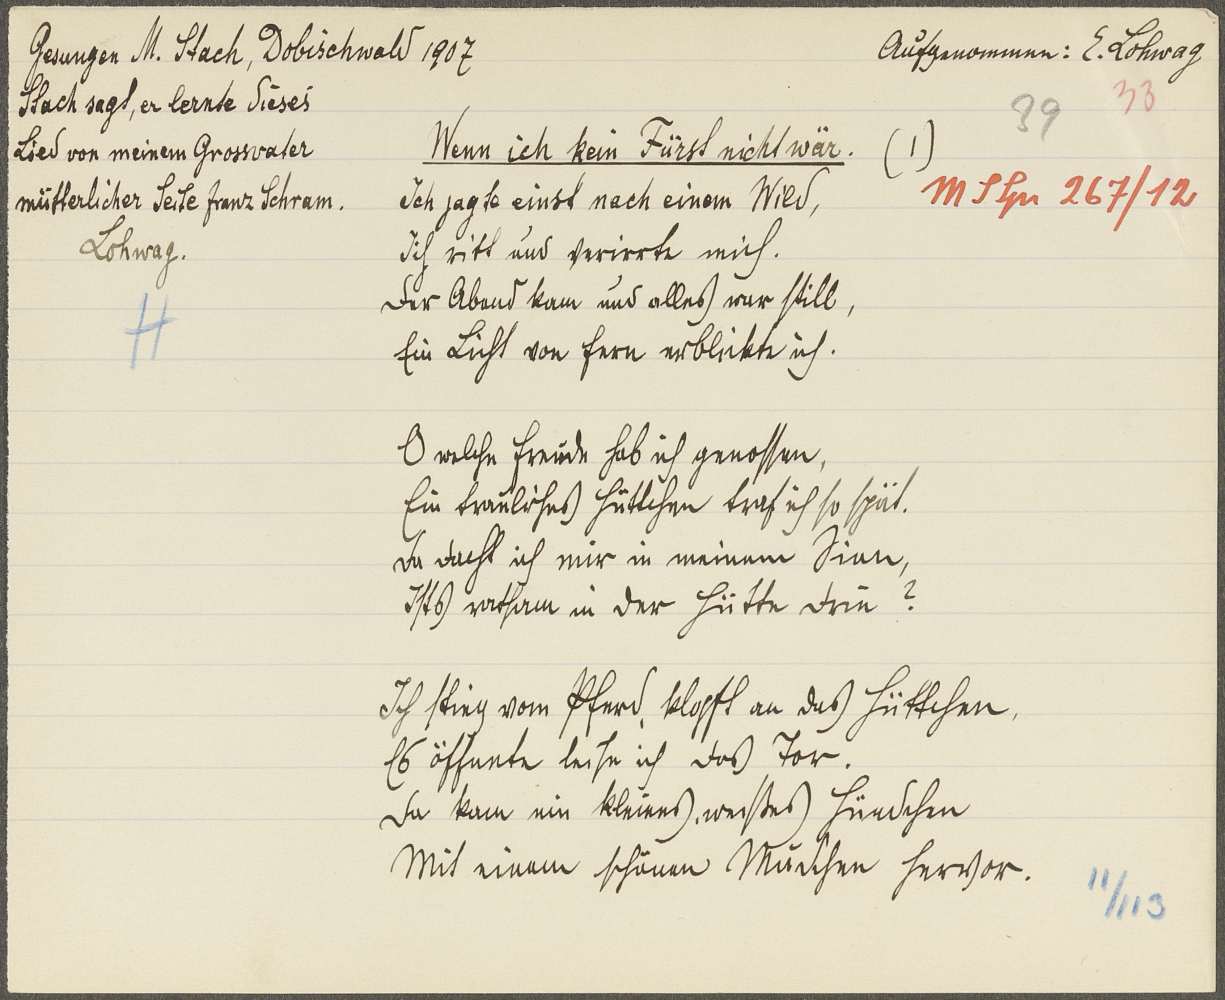 Gesungen M. Stach, Dobischwald 1907
Aufgenommen: E. Lohwag
Stach sagt, er lernte dieses
Lied von meinem Grossvater
mütterlicher Seite Franz Schram.
Lohwag.
H
39
33
Wenn ich kein Fürst nicht wär. (1)
267/12
Ich jagte einst nach einem Wild,
Ich ritt und verirrte mich.
Der Abend kam und alles war still,
Ein Licht von fern erblickte ich.
O welche Freude hab ich genossen,
Ein trauliches Hüttchen traf ich so spät.
Da dacht ich mir in meinem Sinn,
Ists ratsam in der Hütte drin?
Ich stieg vom Pferd, klopft an das Hüttchen,
Es öffnete leise ich das Tor.
Da kam ein kleines, weißes Hündchen
Mit einem schönen Mädchen hervor.
11/113